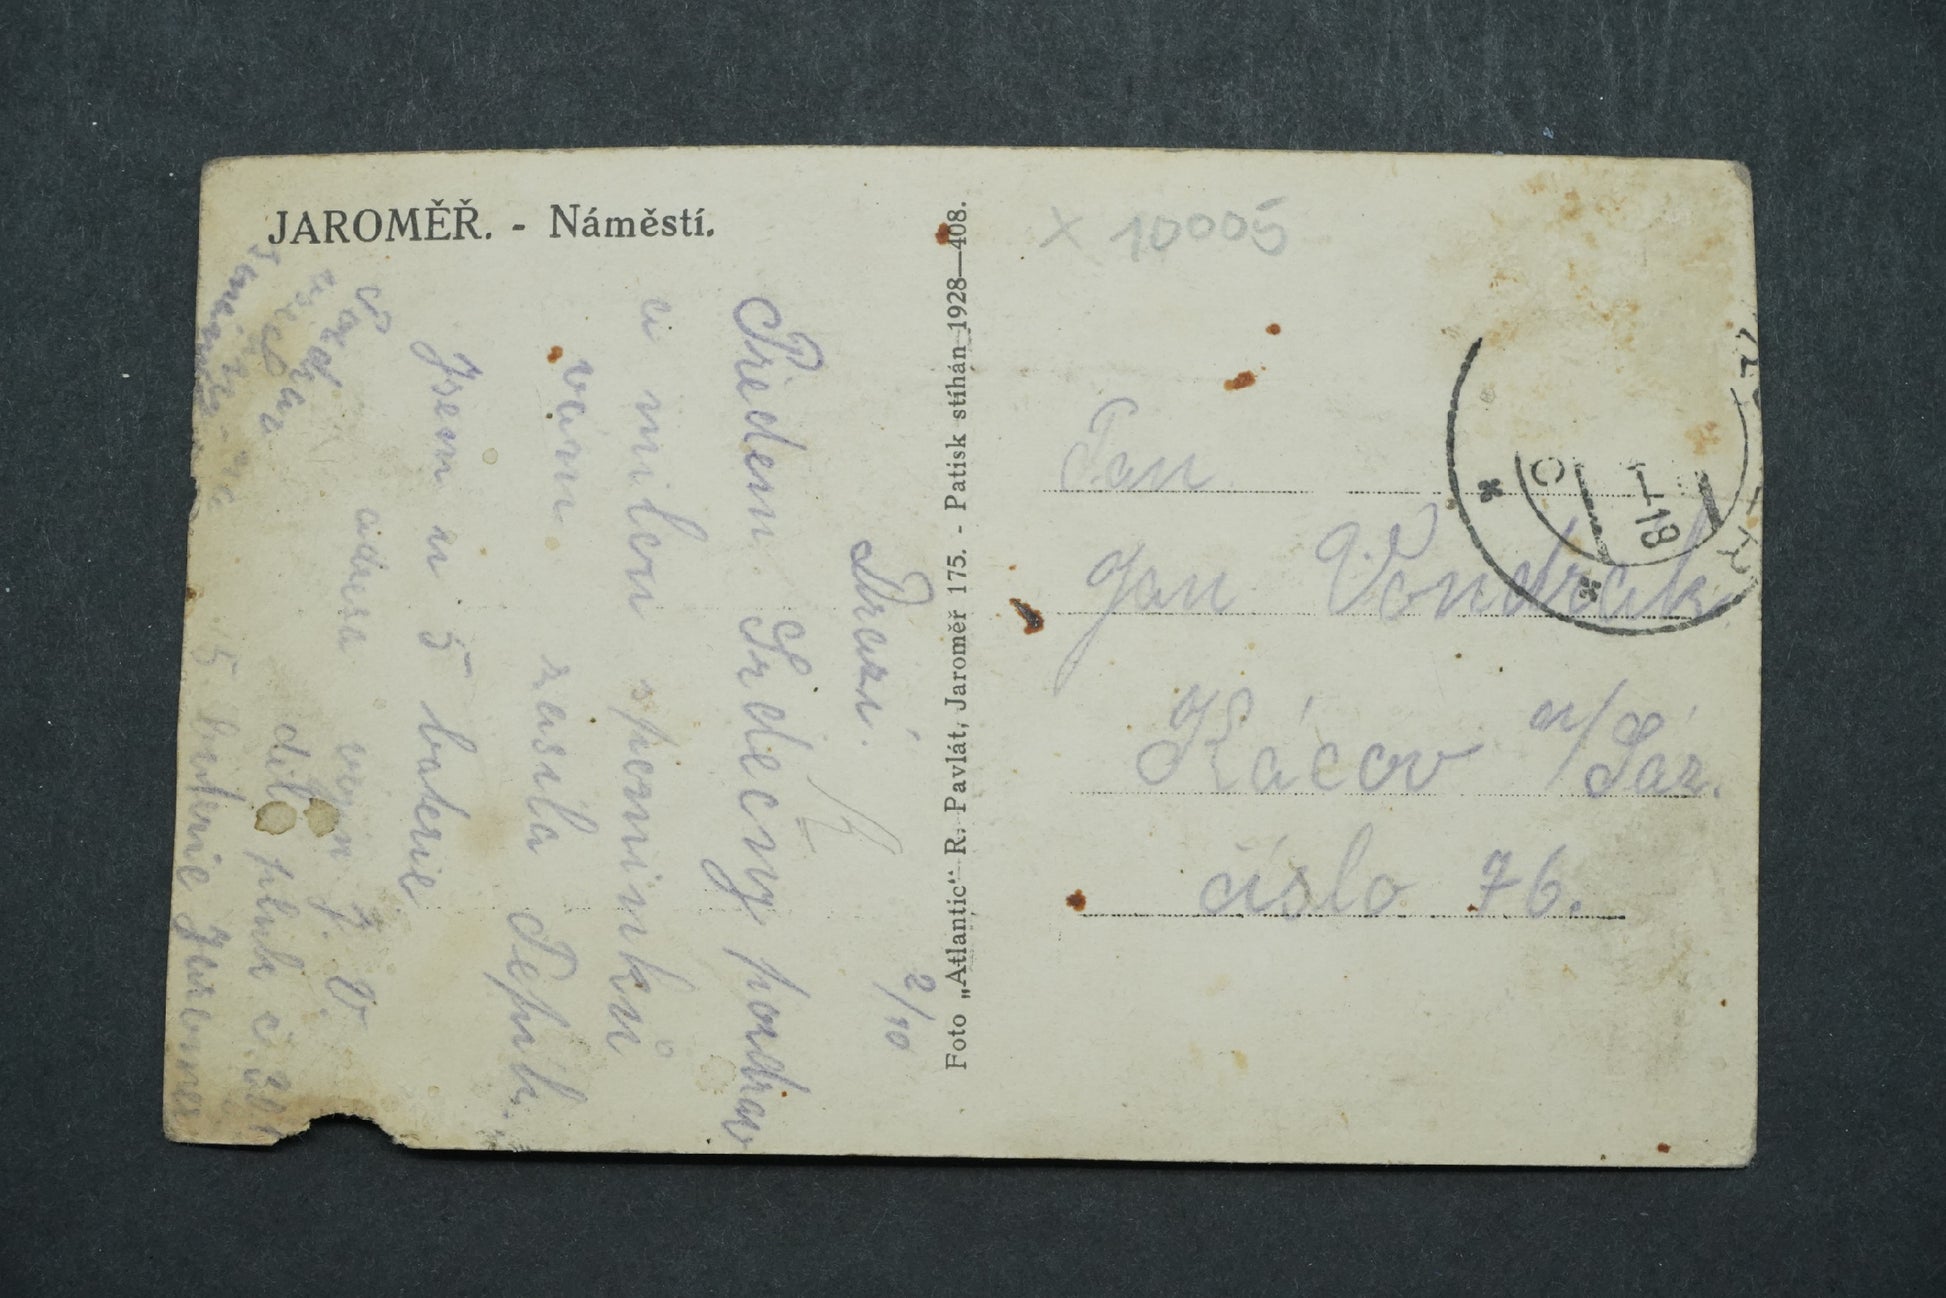 JAROMĚŘ. - Náměstí.
Foto „Atlantic“ R. Pavlát, Jaroměř 175. - Patisk stíhán 1928—408.
x 10005
2/10
Drazí.
Předem Srdečný pozdrav
a milou spomínku
vám zasílá Pepík.
Jsem u 5 baterie
adresa vojín J. V.
děl. pluk č.
5 baterie
Pan
Jan Vondrak
Kácov n/Sáz.
číslo 76.